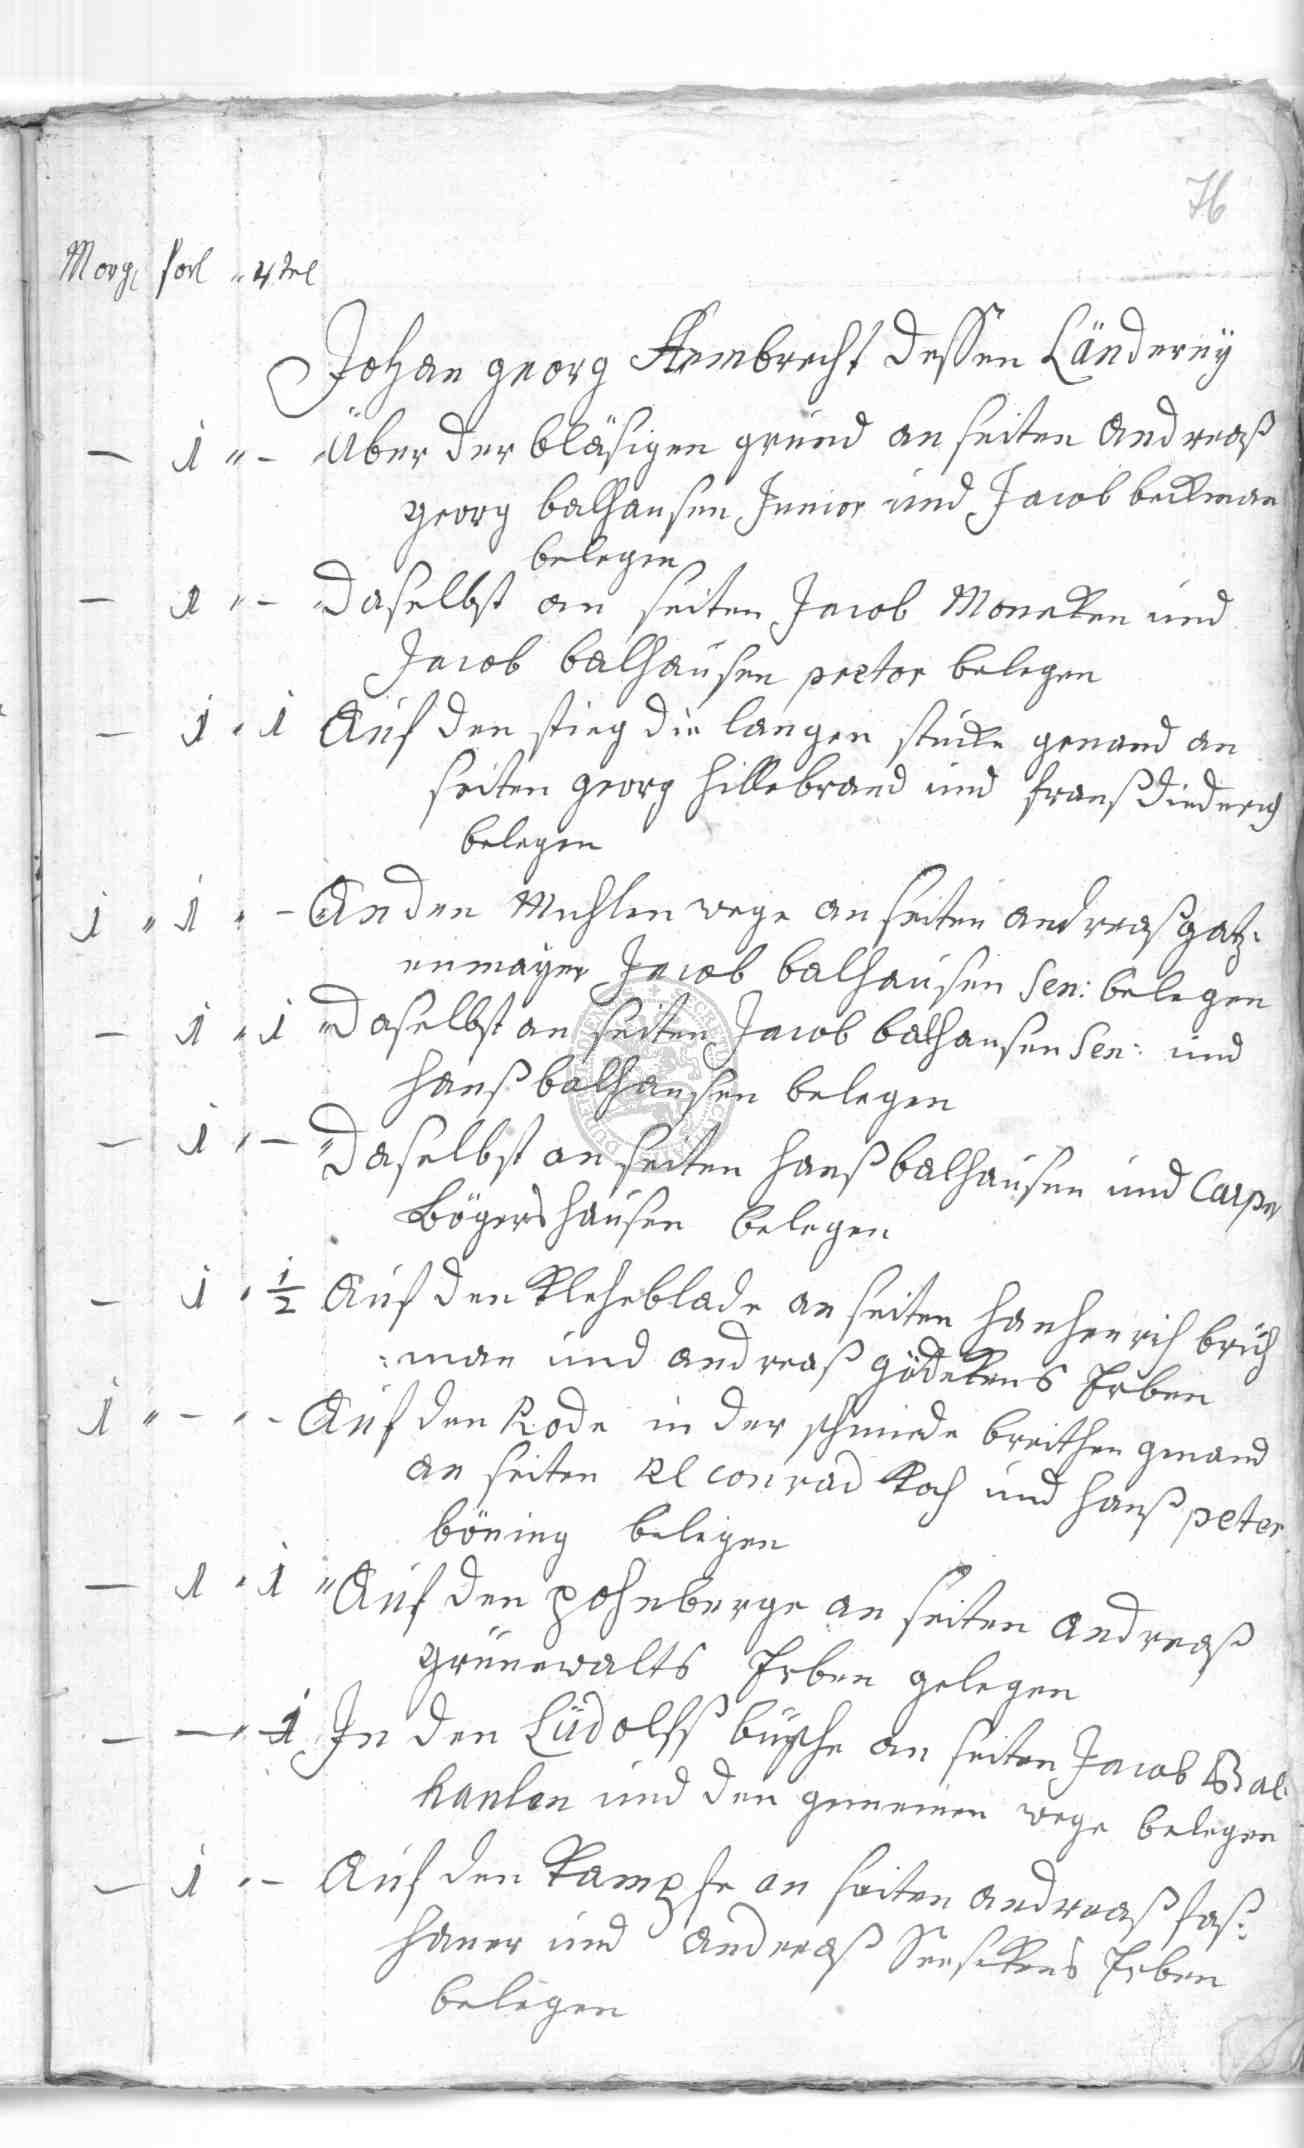 76
Morg: Vorl " 4tel
Johan georg Armbrecht dessen Länderey
— 1 " – Über der bläsigen grund an seiten Andreaß
georg balhausen Junior und Jacob beckman
belegen
— 1 " – Daselbst an seiten Jacob Moneken und
Jacob balhausen pretor belegen
— 1 " 1 Auf den stieg die langen stücke genand an
seiten georg hillebrand und franß diederich
belegen
1 " 1 " – An den Muhlen wege an seiten andreaß gatz-
enmayer Jacob balhausen Sen: belegen
— 1 " 1 Daselbst an seiten Jacob balhausen Sen: und
hanß balhausen belegen
— 1 " – Daselbst an seiten hanß balhausen und Casper
Bögershausen belegen
— 1 " 1/2 Auf den Kleheblade an seiten hanhenrich brüch
:man und andreaß gödekens Erben
1 " – " – Auf den Rode in der schmiede breithen genand
an seiten Conrad Koch und hanß peter
böning belegen
— 1 " 1 Auf den pohnberge an seiten Andreaß
grünewalts Erben gelegen
— — " 1 In den Lüdolfß büsche an seiten Jacob Bal-
hausen und den gemeinen wege belegen
— 1 " – Auf den Kampfe an seiten andreaß faß-
hauer und andreaß Erben
belegen